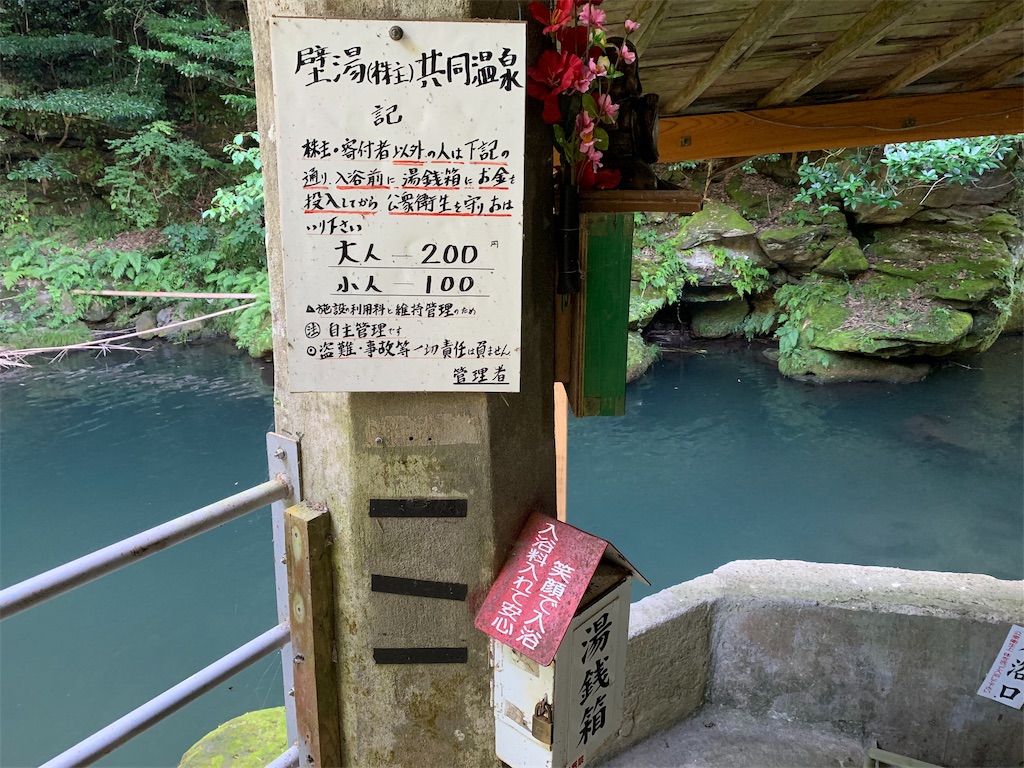 壁湯(株主)共同温泉
記
株主・寄付者以外の人は下記の
通り入浴前に湯銭箱にお金を
投入してから公衆衛生を守りおは
いり下さい
大人 ― 200円
小人 ― 100
▲施設の利用料と維持管理のため
自主管理です
◎盗難・事故等一切責任は負ません
管理者
笑顔で入浴
入浴料入れて安心
湯銭箱
浴口